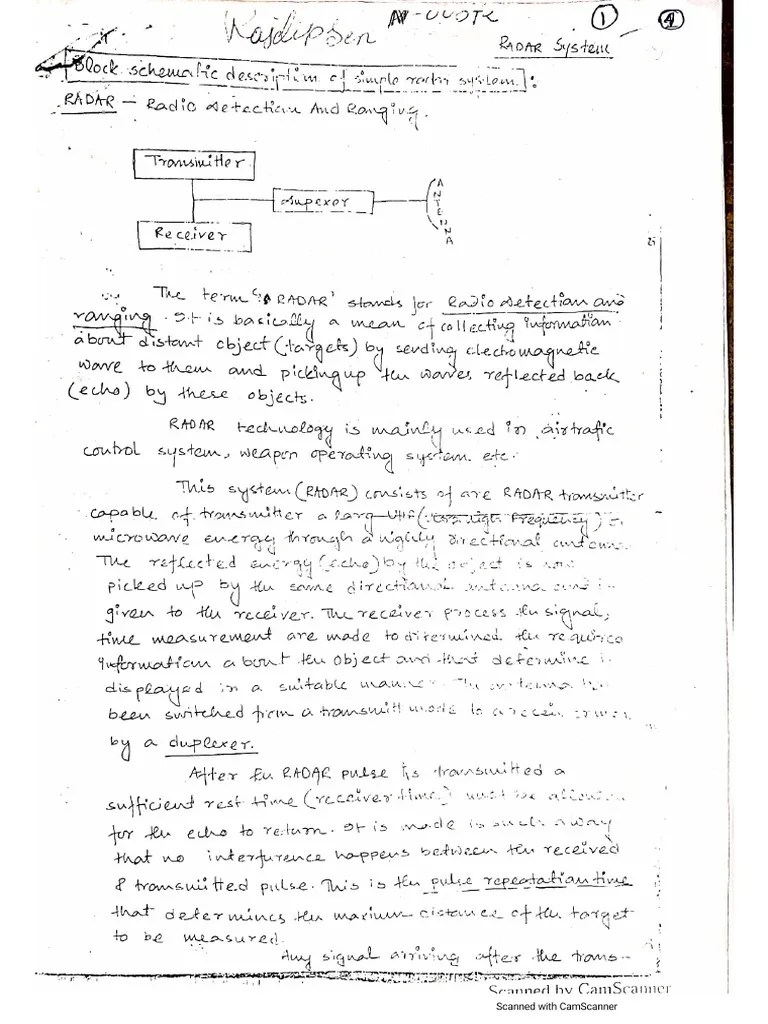 Rajdipsen
1
4
RADAR System
Block schematic description of simple radar system :
RADAR — Radio detection And Ranging.
Transmitter
duplexer
ANTENNA
Receiver
The term 'RADAR' stands for Radio detection and
ranging. It is basically a mean of collecting information
about distant object (targets) by sending electromagnetic
wave to them and picking up the waves reflected back
(echo) by these objects.
RADAR technology is mainly used in airtrafic
control system, weapon operating system etc.
This system (RADAR) consists of are RADAR transmitter
capable of transmitter a larg UHF ( Frequency)
microwave energy through a highly directional
The reflected energy (echo) by the object is
picked up by the same directional antenna and
given to the receiver. The receiver process the signal,
time measurement are made to ditermined the
information about the object and that determine
displayed in a suitable manner. The antenna
been switched from a transmitt mode to a
by a duplexer.
After RADAR pulse is transmitted a
sufficient rest time (receiver time) must be
for the echo to return. It is made is such away
that no interfurence happens between the received
& transmitted pulse. This is the pulse repeatation time
that determines the maxium distance of the target
to be measured.
Any signal arriving after the trans-
Scanned by CamScanner
Scanned with CamScanner